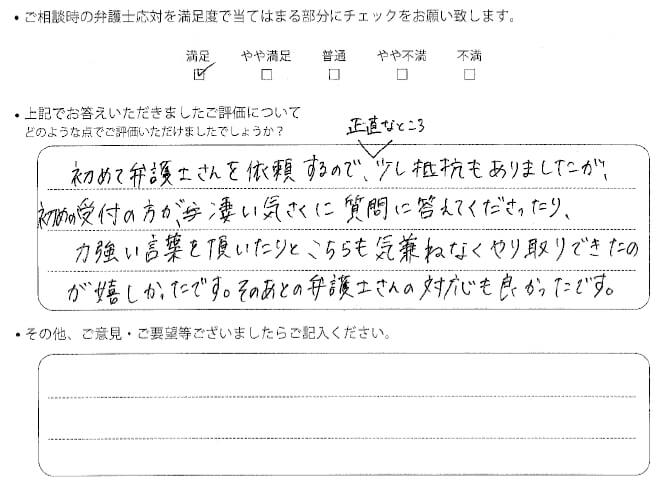 • ご相談時の弁護士応対を満足度で当てはまる部分にチェックをお願い致します。
満足 やや満足 普通 やや不満 不満
• 上記でお答えいただきましたご評価について
どのような点でご評価いただけましたでしょうか?
正直なところ
初めて弁護士さんを依頼するので、少し抵抗もありましたが、
初めの受付の方が、凄い気さくに質問に答えてくださったり、
力強い言葉を頂いたりとこちらも気兼ねなくやり取りできたの
が嬉しかったです。そのあとの弁護士さんの対応も良かったです。
• その他、ご意見・ご要望等ございましたらご記入ください。